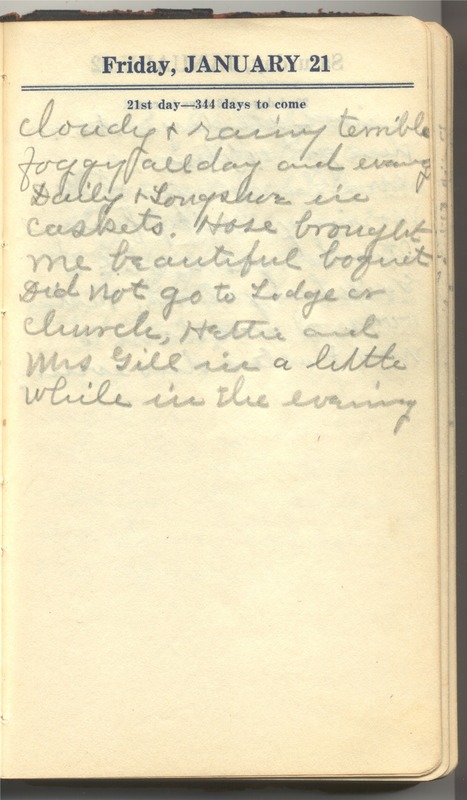 Friday, JANUARY 21
21st day—344 days to come
Cloudy & rainy terrible
foggy all day and evening
Daily & Longshore in
caskets. Hose brought
me beautiful boquet
Did not go to Lodge or
Church, Hattie and
Mrs Gill in a little
while in the evening